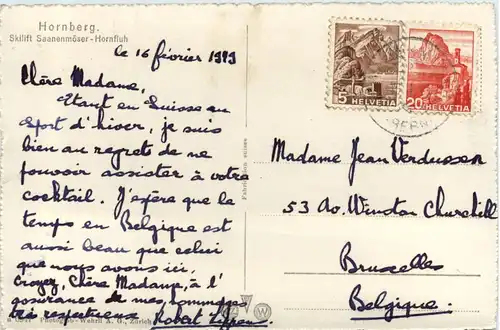 Hornberg.
Skilift Saanenmöser-Hornfluh
le 16 février 1949
Chère Madame,
Etant en Suisse au
sport d'hiver, je suis
bien au regret de ne
pouvoir assister à votre
cocktail. J'espère que le
temps en Belgique est
aussi beau que celui
que nous avons ici.
Croyez, Chère Madame, à l'
assurance de mes hommages
très respectueux Robert Lippens.
Photogr.-Wehrli A. G., Zürich
Fabrication suisse
5 HELVETIA
20 HELVETIA
Madame Jean Verdussen
53 Av. Winston Churchill
Bruxelles
Belgique.